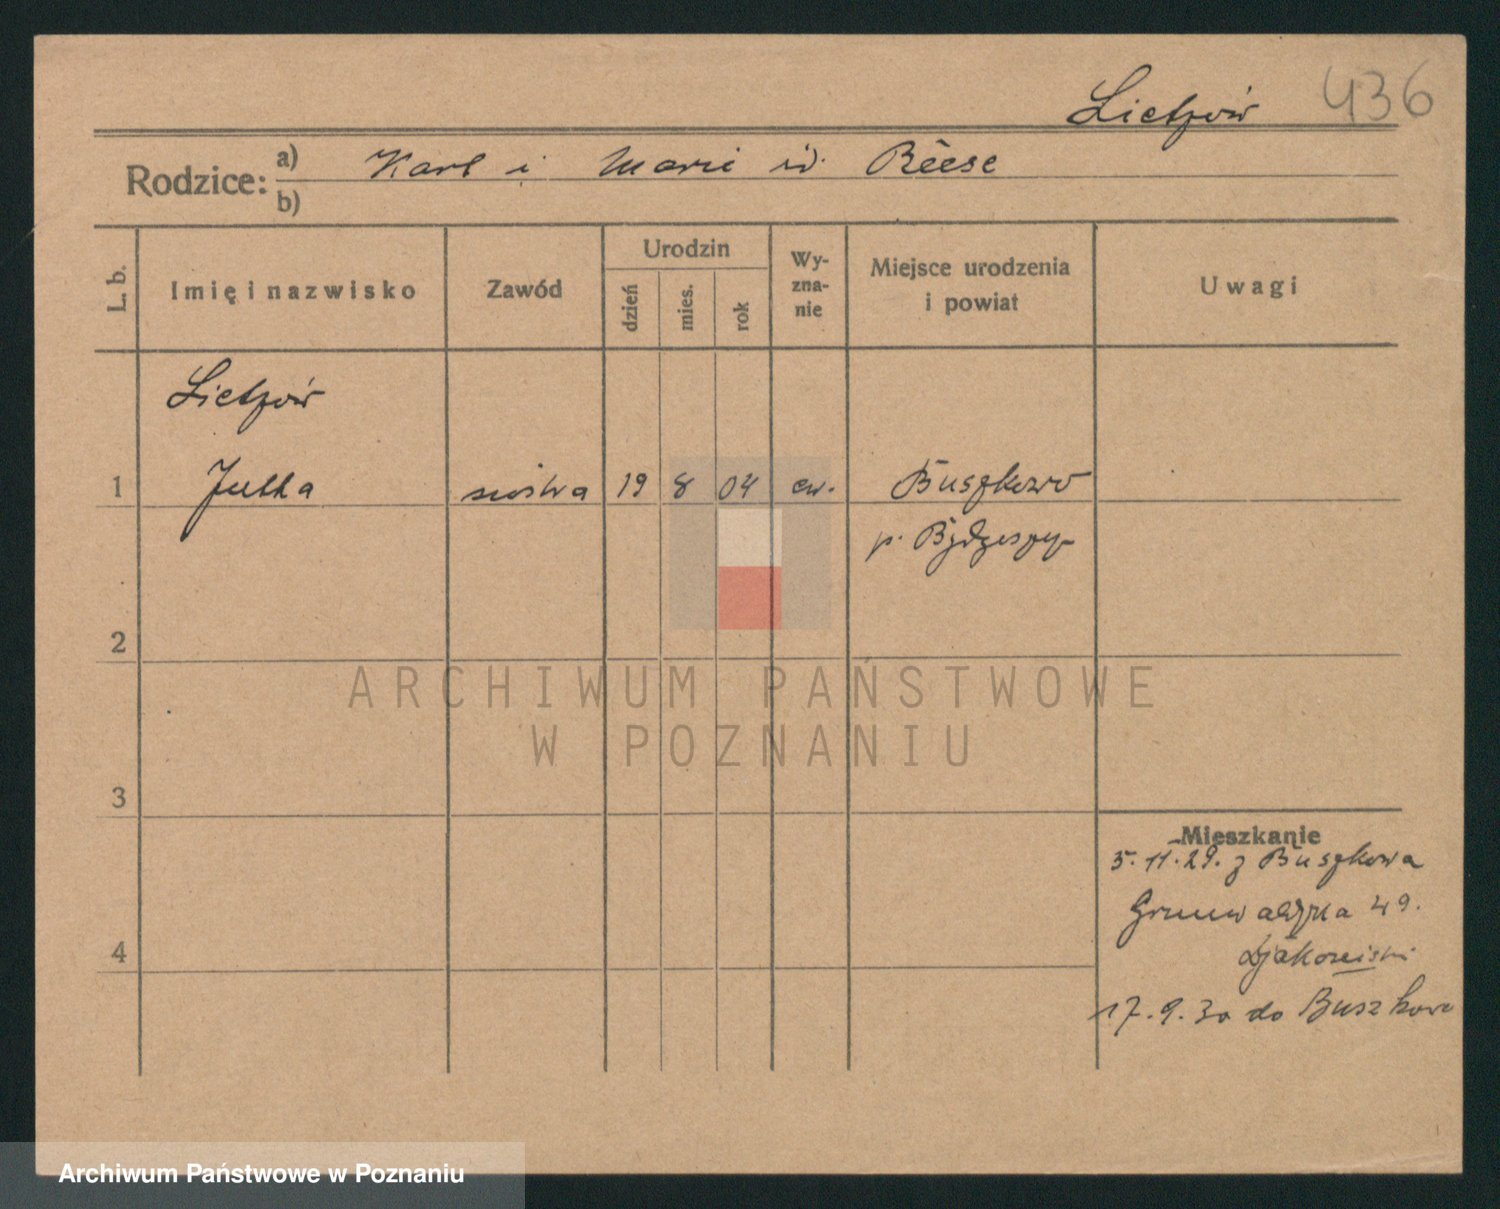 Lietzów 436
Rodzice: a) Karl i Marie w. Reese
b)
L. b. Imię i nazwisko Zawód Urodzin dzień mies. rok Wyznanie Miejsce urodzenia i powiat Uwagi
Lietzów
1 Jutta siostra 19 8 04 ew. Buszkowo
p. Bydgoszcz
2
3
4
Mieszkanie
5.11.29. z Buszkowa
Grunwaldzka 49.
17.9.30 do Buszkowa
ARCHIWUM PAŃSTWOWE
W POZNANIU
Archiwum Państwowe w Poznaniu